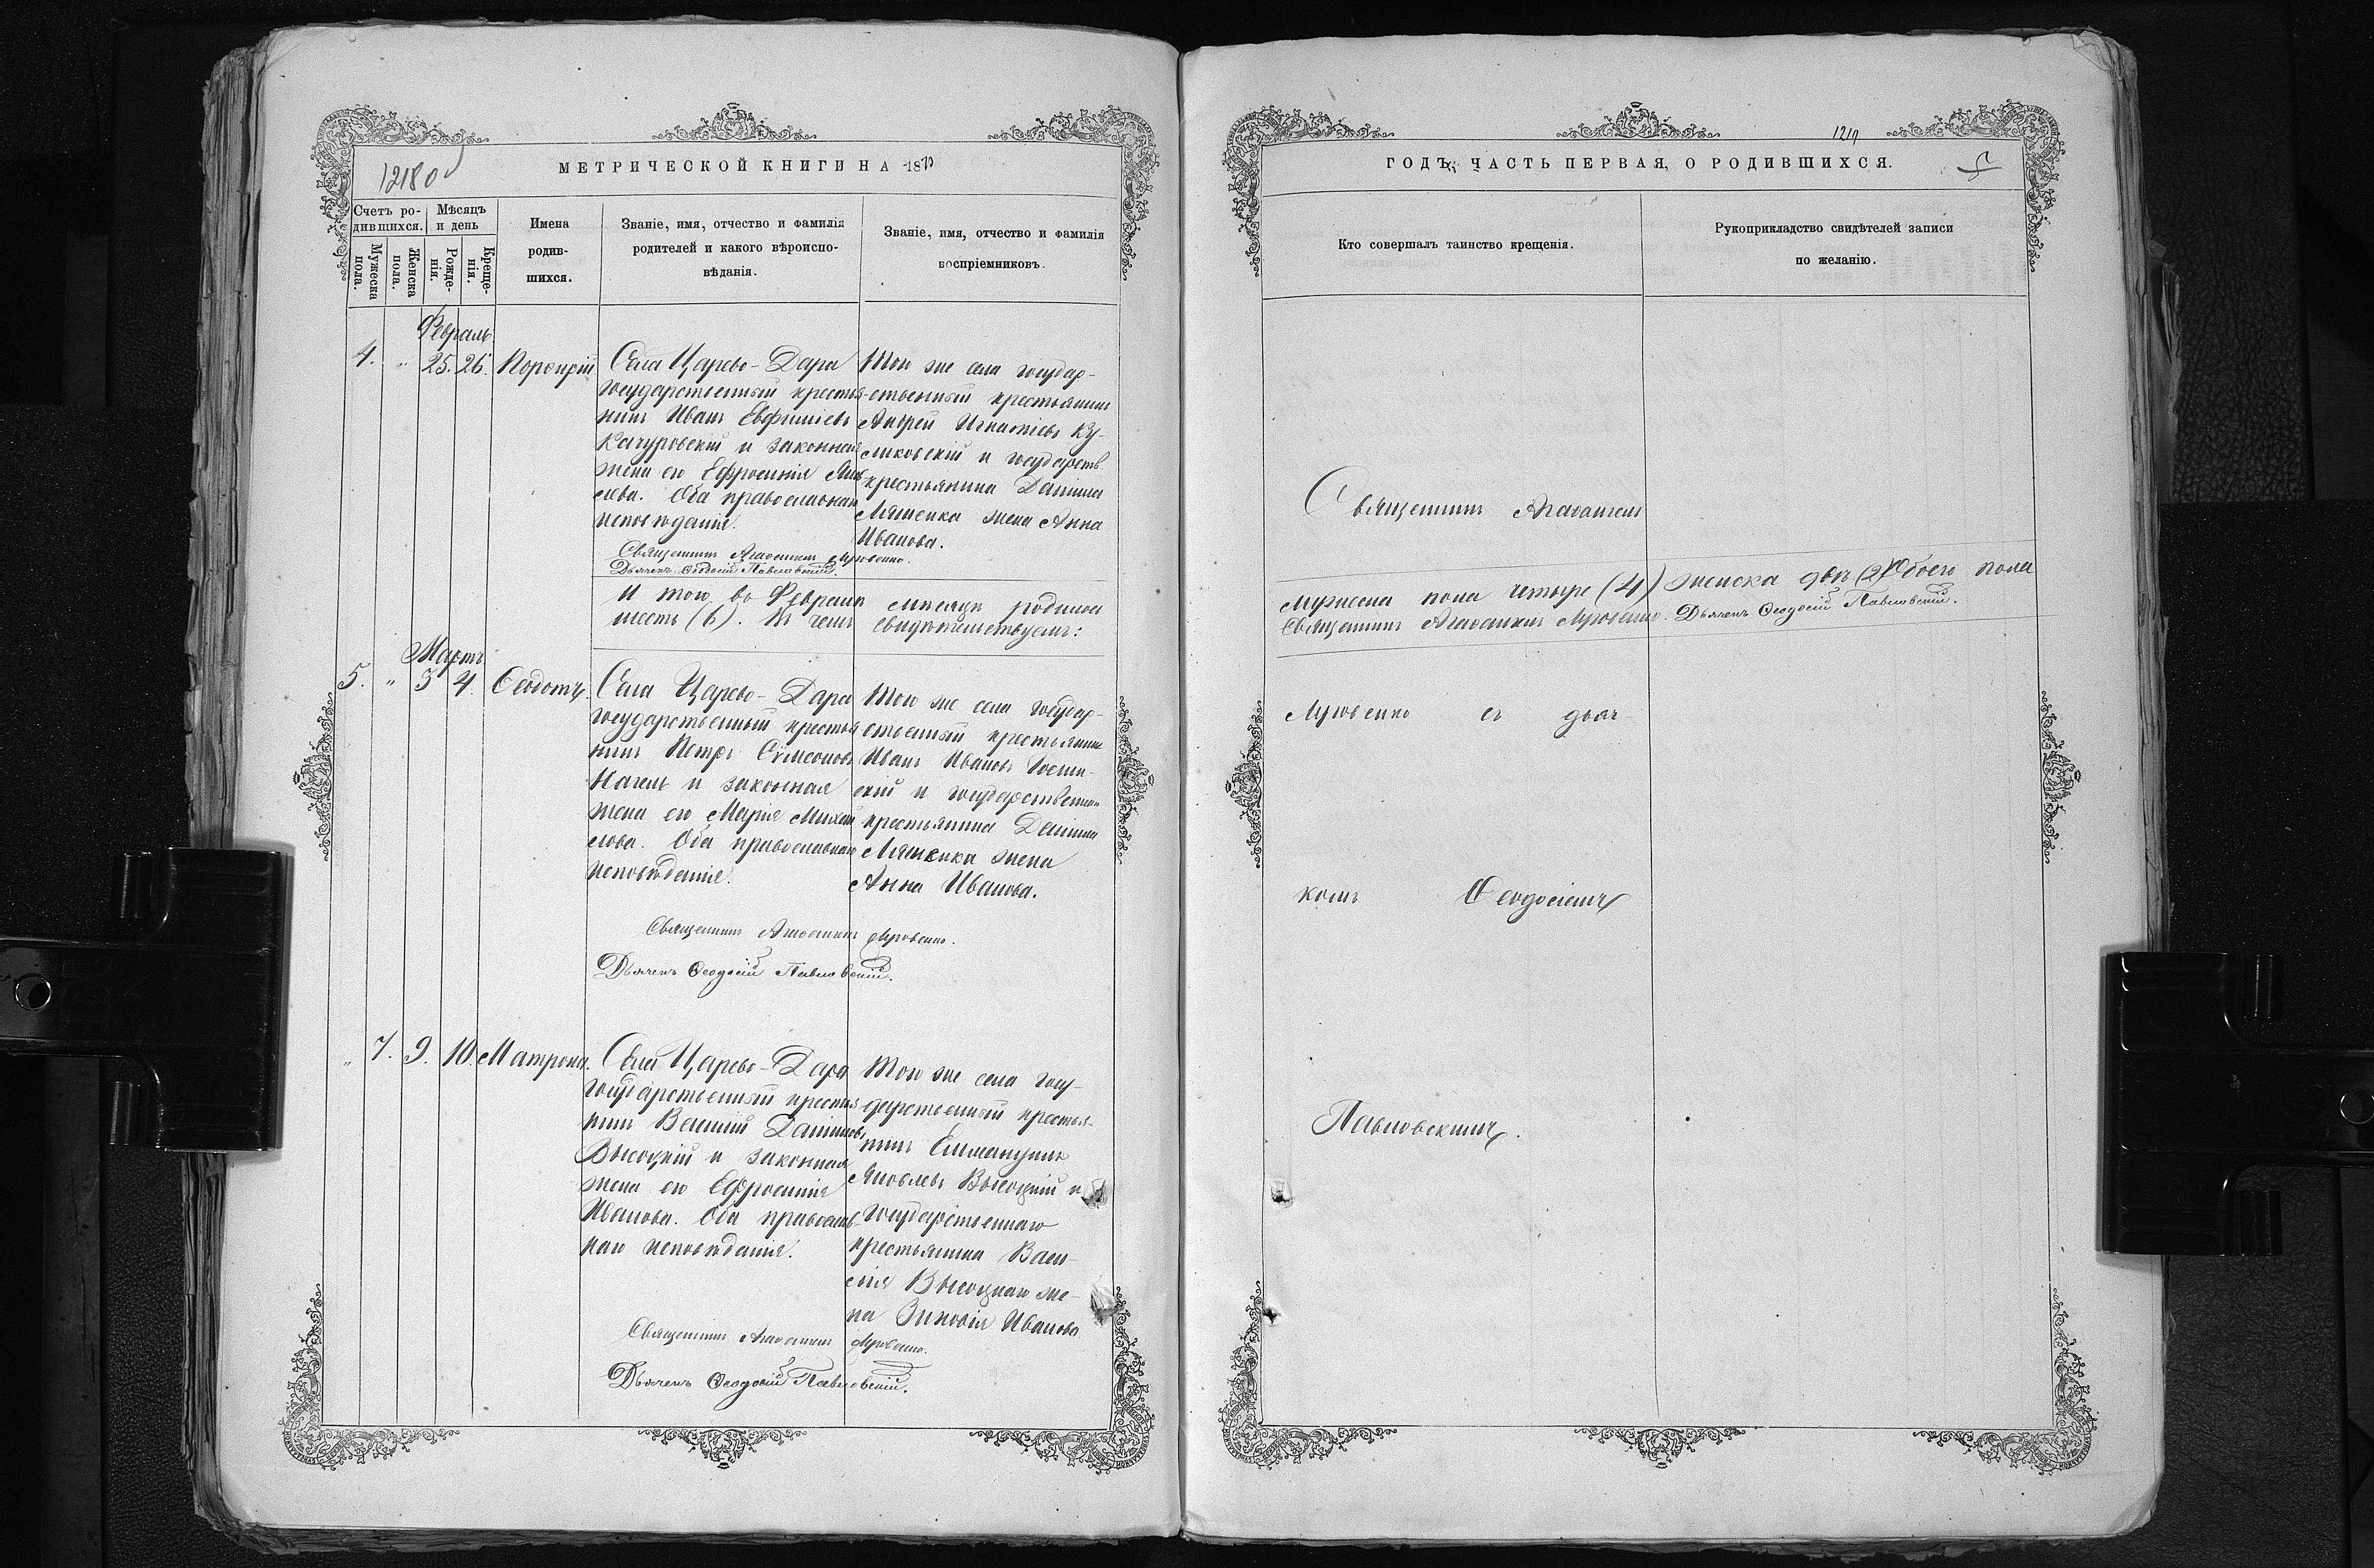 12180
МЕТРИЧЕСКОЙ КНИГИ НА 1870
Счетъ ро-
дившихся.
Мѣсяцъ
и день
Мужеска
пола.
Женска
пола.
Рожде-
нія.
Креще-
нія.
Имена
родив-
шихся.
Званіе, имя, отчество и фамилія
родителей и какого вѣроиспо-
вѣданія.
Званіе, имя, отчество и фамилія
воспріемниковъ.
Февраль
4. " 25. 26. Порфирій
Села Царево-Дара
государственный крестья-
нинъ Иванъ Евфиміевъ
Качуровскій и законная
жена его Ефросинія
Оба православнаго
исповѣданія.
Того же села государ-
ственный крестьянинъ
Андрей Игнатіевъ Ку-
ликовскій и государств.
крестьянина Даніила
Ляшенка жена Анна
Иванова.
Священникъ
Дьячекъ Ѳеодосій Павловскій.
И того въ Февралѣ мѣсяцѣ родилось
шесть (6). Въ чемъ свидѣтельствуемъ:
Мартъ
5. " 3 4. Ѳеодотъ.
Села Царево-Дара
государственный крестья
нинъ Петръ Сѵмеоновъ
Нагель и законная
жена его Марія Михаи
лова. Оба православнаго
исповѣданія.
Того же села государ-
ственный крестьянинъ
Иванъ Ивановъ
скій и государственнаго
крестьянина Даніила
Ляшенка жена
Анна Иванова.
Священникъ
Дьячекъ Ѳеодосій Павловскій.
" 7. 9. 10. Матрона.
Села Царево-Дара
государственный крестья
нинъ Даніиловъ
Высоцкій и законная
жена его Ефросинія
Иванова. Оба православ-
наго исповѣданія.
Того же села госу-
дарственный крестья-
нинъ Еммануилъ
Яковлевъ Высоцкій и
государственнаго
крестьянина Васи-
лія Высоцкаго же-
на Зиновія Иванова
Священникъ
Дьячекъ Ѳеодосій Павловскій.
ГОДЪ, ЧАСТЬ ПЕРВАЯ, О РОДИВШИХСЯ.
Кто совершалъ таинство крещенія.
Рукоприкладство свидѣтелей записи
по желанію.
Священникъ
мужеска пола четыре (4) женска двѣ (2) Обоего пола
Священникъ Дьячекъ Ѳеодосій Павловскій.
съ дьяч-
комъ Ѳеодосіемъ
Павловскимъ.